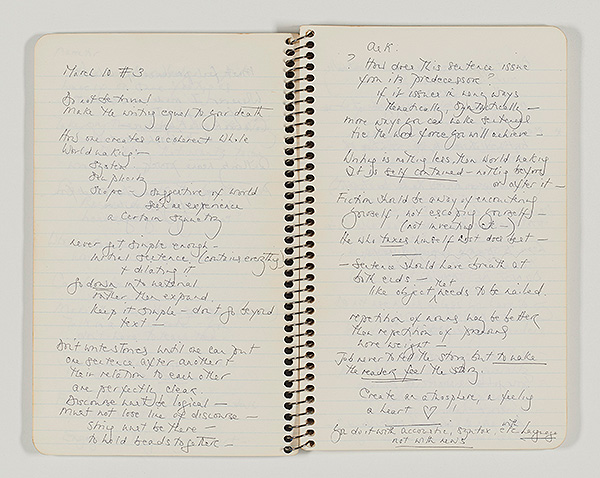 March 10 #3
Do not be trivial
Make the writing equal to your death
How one creates a coherent whole
World making —
System
Simplicity
Scope — suggestive of world
Seen or experience
a certain symmetry
never get simple enough —
initial sentence (contains everything
+ dilating it
Go down into material
rather than expand.
Keep it simple — don't go beyond
text —
Don't write stories until we can put
one sentence after another &
their relation to each other
are perfectly clear
Discourse must be logical —
Must not lose line of discourse —
String must be there —
to hold beads together —
Ask:
? How does this sentence issue
from its predecessor?
if it issues in many ways
thematically, syntactically —
more ways you can make sentences
tie the more force you will achieve —
Writing is nothing less than world making
It is self contained — nothing before
or after it —
Fiction should be a way of encountering
yourself, not escaping yourself —
(not inventing it —)
He who taxes himself best does best —
— Sentence should have breath at
both ends — that
like object needs to be nailed.
repetition of nouns may be better
than repetition of pronouns
more weight —
Job never to tell the story but to make
the reader feel the story.
Create an atmosphere, a feeling
a heart ♡ !!
You do it with acoustic, syntax, etc. language
not with news